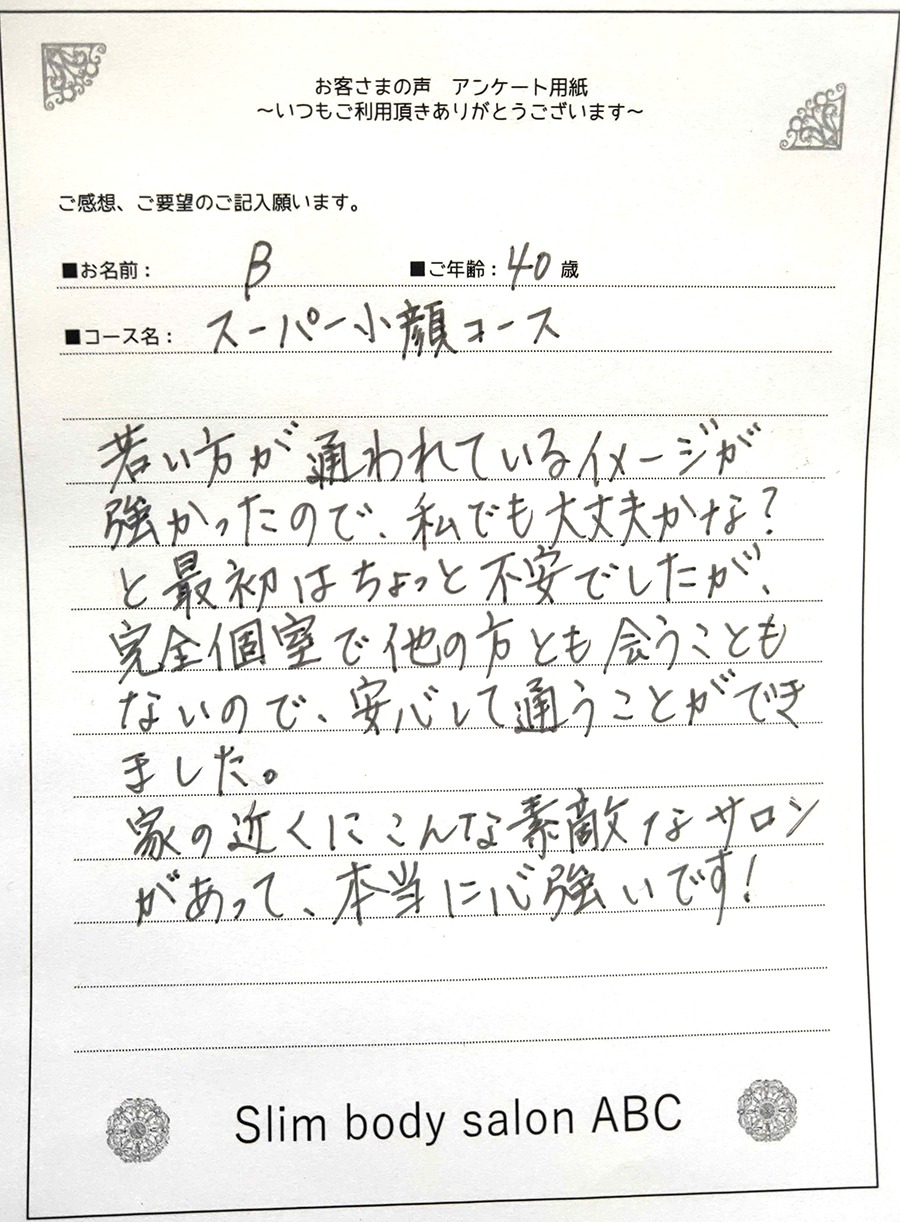 お客さまの声　アンケート用紙
～いつもご利用頂きありがとうございます～
ご感想、ご要望のご記入願います。
■お名前： β ■ご年齢：40 歳
■コース名： スーパー小顔コース
若い方が通われているイメージが
強かったので、私でも大丈夫かな？
と最初はちょっと不安でしたが、
完全個室で他の方とも会うことも
ないので、安心して通うことができ
ました。
家の近くにこんな素敵なサロン
があって、本当に心強いです！
Slim body salon ABC